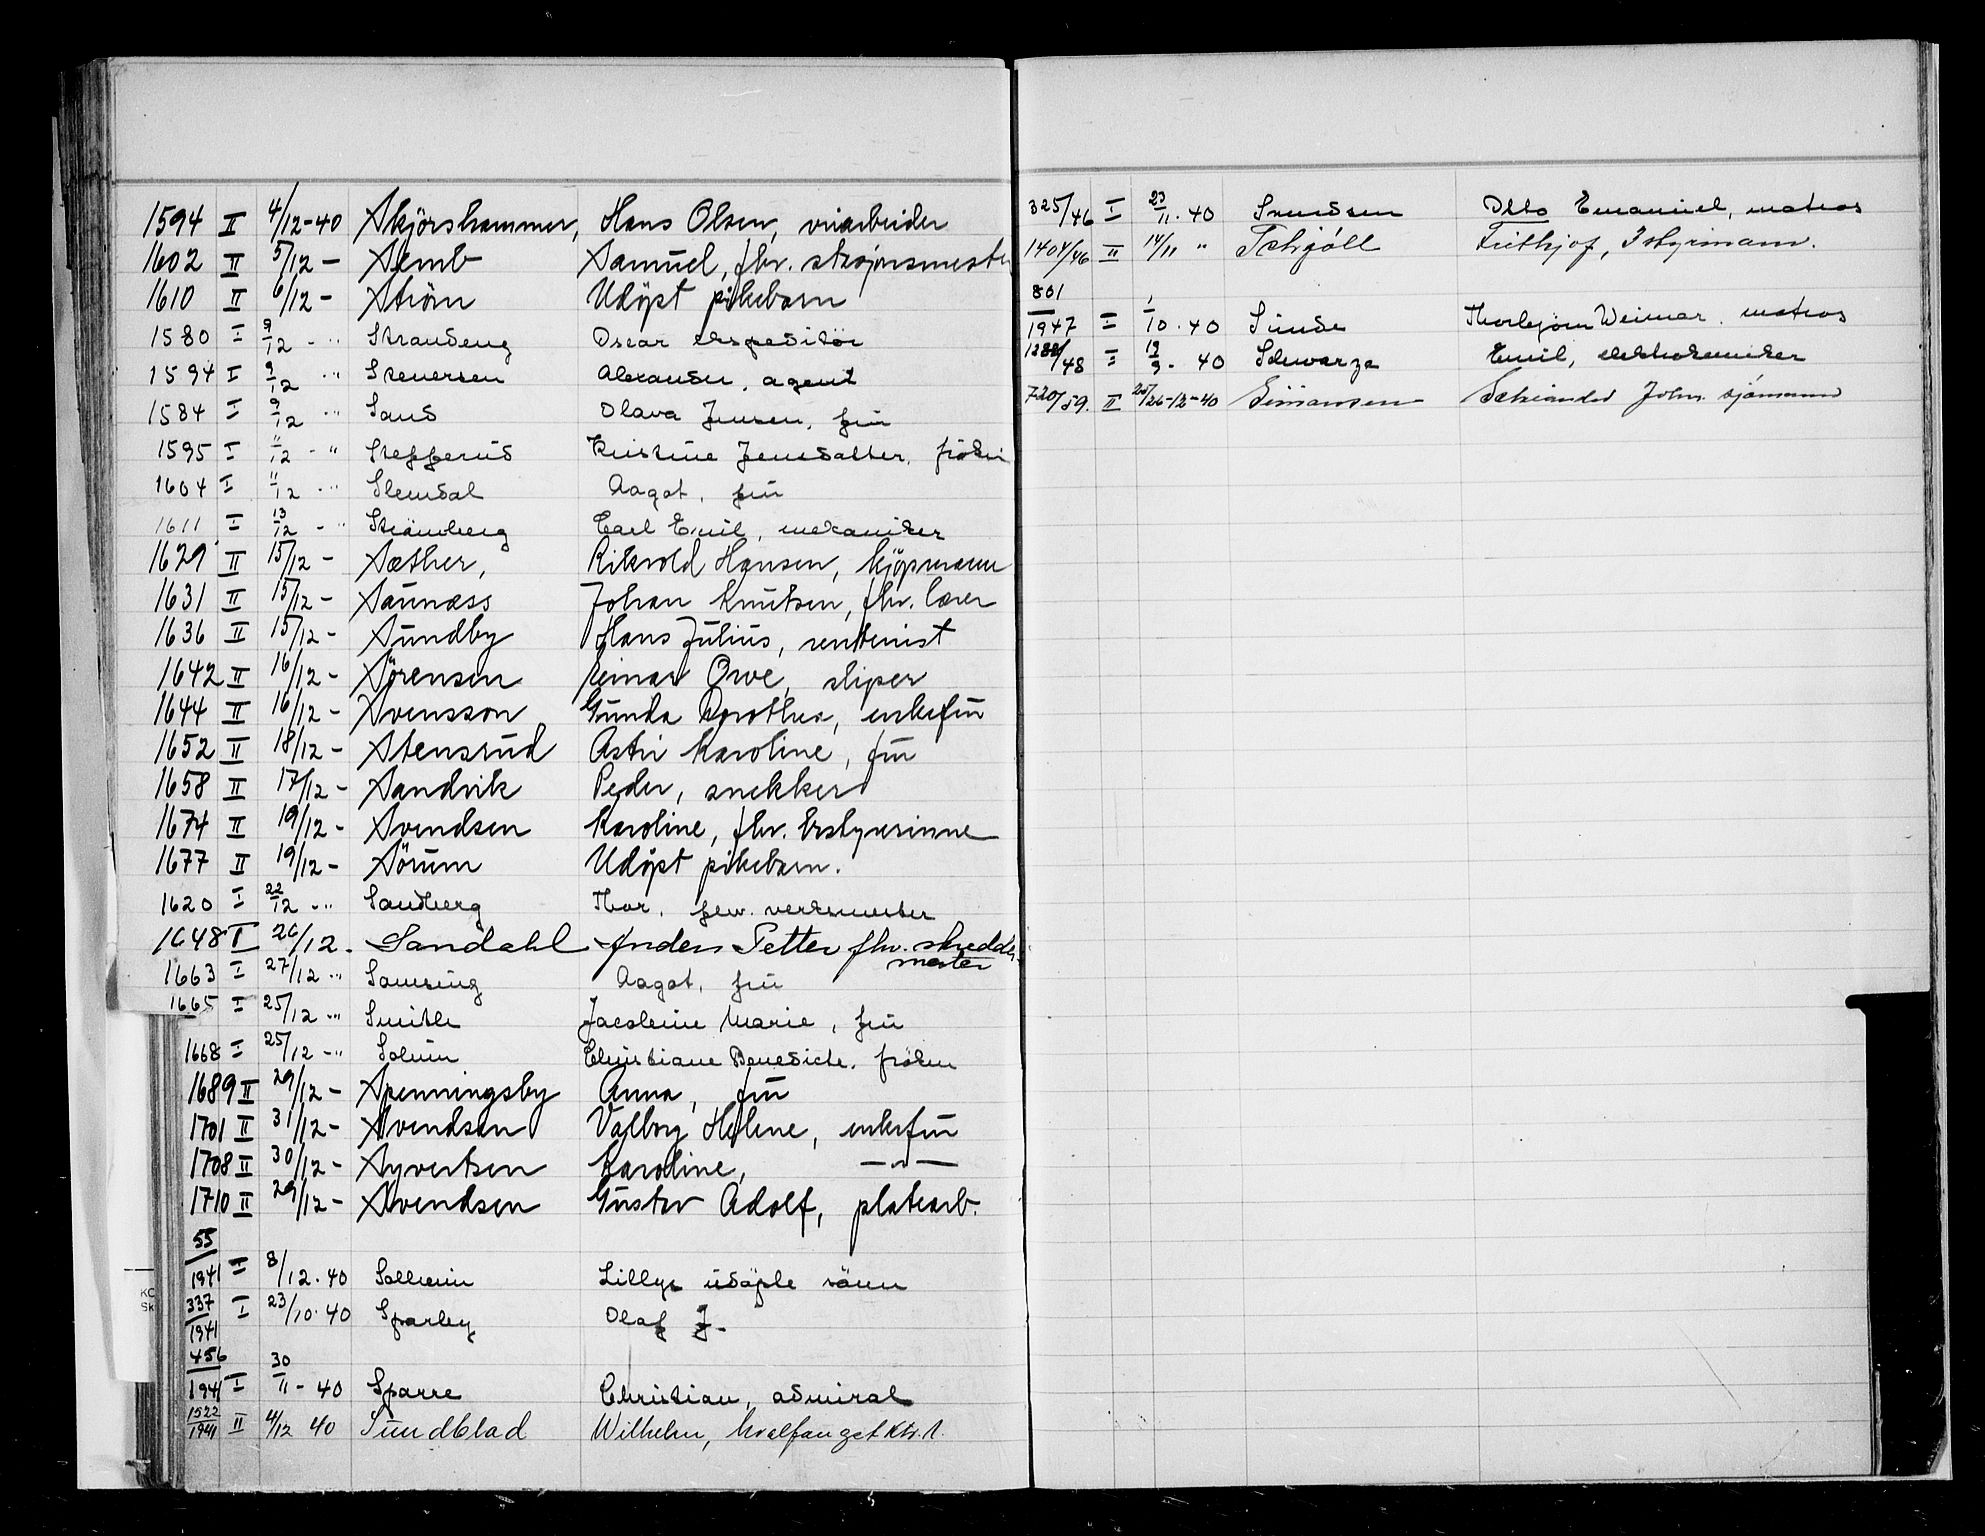 1594 II 4/12-40 Skjörshammer, Hans Olsen,
1602 II 5/12 - Semb Samuel, fhv.
1610 II 6/12 - Ström Udöpt pikebarn
1580 I 9/12 - " Strandeng Oscar ekspeditör
1594 I 9/12 " Stenersen Alexander, agent
1584 I 9/12 " Sand Olava Jensen, frü
1595 I 11/12 - " Steffens Kristine, fröken
1604 I 11/12 - " Slemdal Aagot, frü
1611 I 13/12 - " Strömberg Carl Emil, mekaniker
1629 II 15/12 - Sæther, Rikvold Hansen, kjöpmann
1631 II 15/12 - Saunæss Johan Knutsen, fhv. lærer
1636 II 15/12 - Sundby Hans Julius, rentenist
1642 II 16/12 - Sörensen Reinar Owe, sliper
1644 II 16/12 - Svensson Gunda Dorothea, enkefrü
1652 II 18/12 - Stensrud Astri Karoline, frü
1658 II 17/12 - Sandvik Peder, snekker
1674 II 19/12 - Svendsen Karoline, fhv. bestyrerinne
1677 II 19/12 - Sörum Udöpt pikebarn.
1620 I 22/12 - " Sandberg Thor, fhv. verksmester
1648 I 26/12 - Sandahl Anders Petter fhv. skredder-
mester
1663 I 27/12 " Samsing Aagot, frü
1665 I 25/12 - " Smith Jacobine Marie, frü
1668 I 25/12 - " Solum Christiane Benedicte, fröken
1689 II 29/12 - Spenningsby Anna, frü
1701 II 31/12 - Svendsen Valborg Helene, enkefrü
1708 II 30/12 - Syvertsen Karoline, — " —
1710 II 29/12 - Svendsen Gustav Adolf, platearb.
55/1941 I 8/12.40 Solheim Lillys udöpte sönn
337/1941 I 23/10.40 Sparby Olaf J.
456/1941 I 30/11-40 Sparre Christian, admiral
1522/1941 II 4/12 40 Sundblad Wilhelm, hvalfangst
325/46 I 23/11.40 Svendsen Otto Emanuel, matros
1404/46 II 14/11 " Schjöll Frithjof, 3 styrmann.
801/1947 I 1/10.40 Sunde Thorbjörn Weimar, matros
/48 I 19/9-40 Schwarze Emil, elektrokemiker
720/59. II 25/26-12-40 Simonsen John sjömann